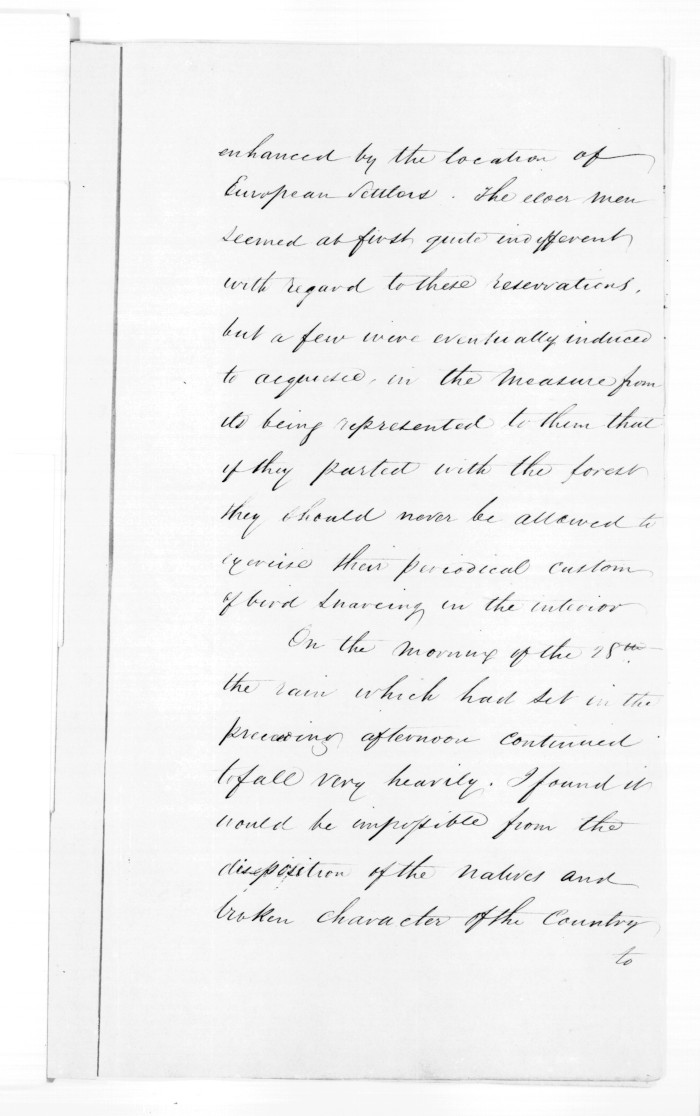 enhanced by the location of
European Settlers. The elder men
seemed at first quite indifferent
with regard to these reservations,
but a few were eventually induced
to acquiesce, in the measure from
its being represented to them that
if they parted with the forest
they should never be allowed to
exercise their periodical custom
of bird snareing in the interior
On the morning of the 25th
the rain which had set in the
preceeding afternoon continued
to fall very heavily. I found it
would be impossible from the
disposition of the natives and
broken character of the Country
to